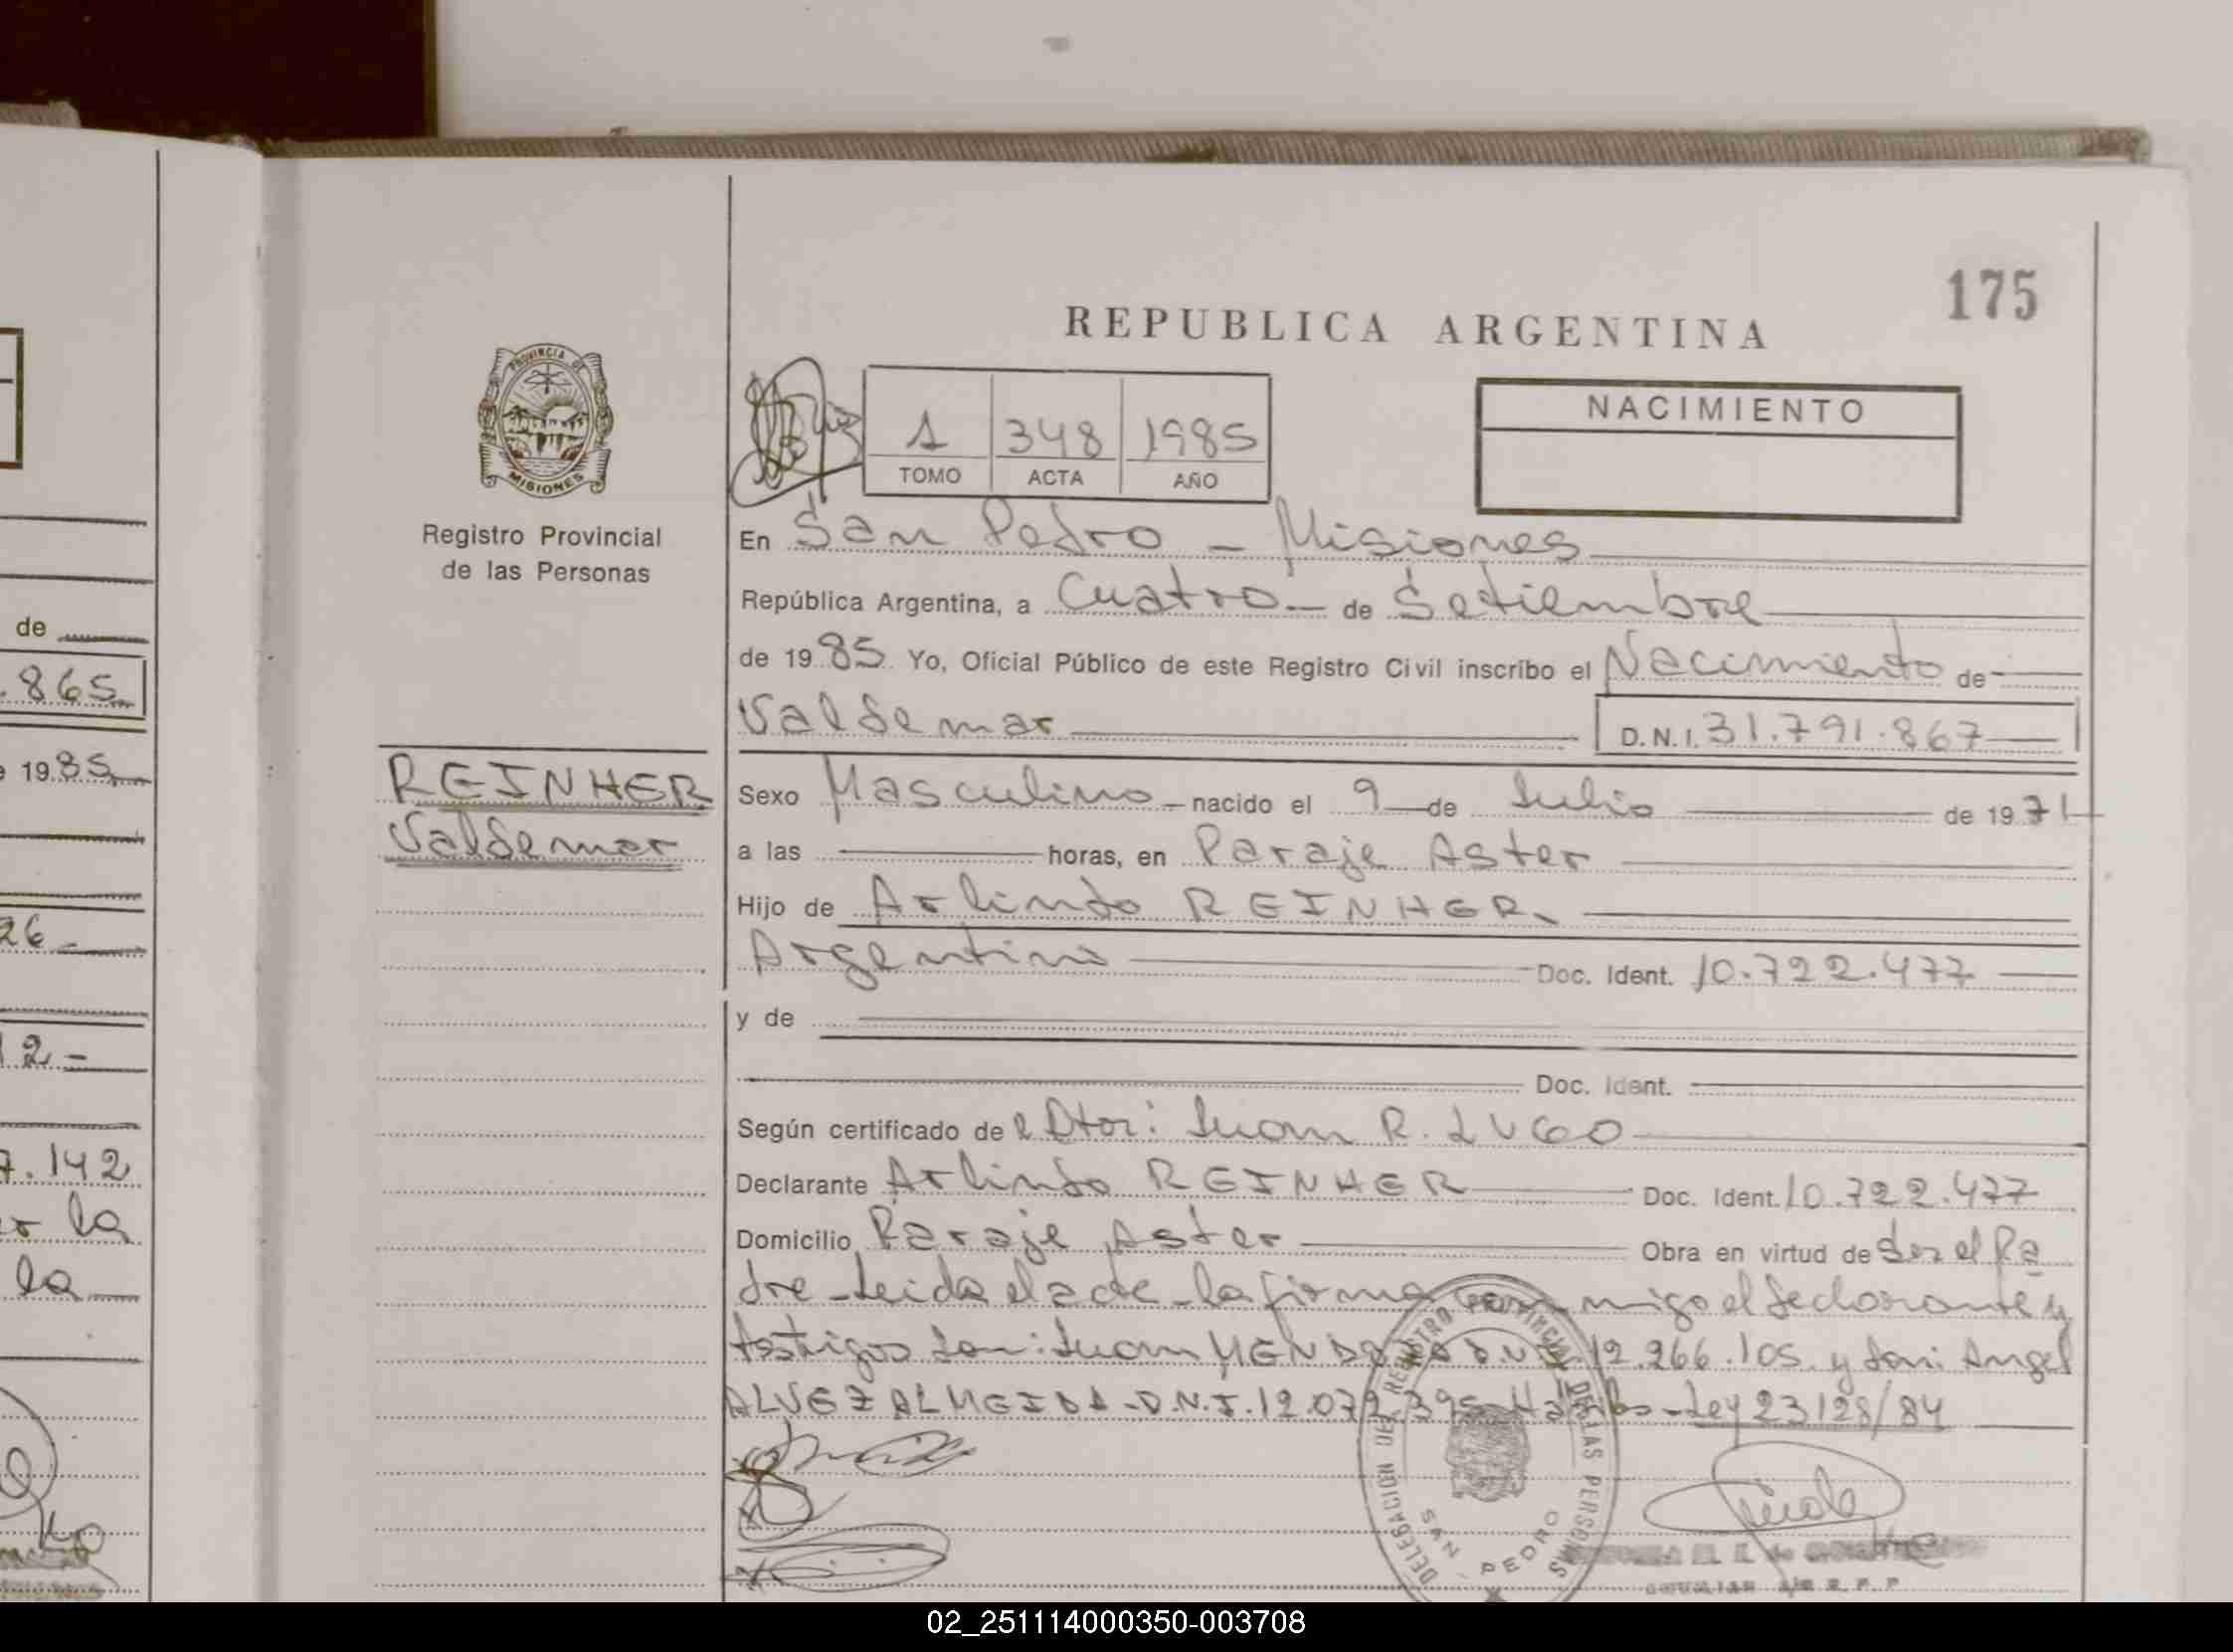 175
REPUBLICA ARGENTINA
PROVINCIA DE
MISIONES
Registro Provincial
de las Personas
1 348 1985
TOMO ACTA AÑO
NACIMIENTO
En San Pedro - Misiones
República Argentina, a Cuatro - de Setiembre
de 1985 Yo, Oficial Público de este Registro Civil inscribo el Nacimiento de
Valdemar D.N.I. 31.791.867
REINHER
Valdemar
Sexo Masculino - nacido el 9 de Julio de 1971
a las horas, en Paraje Aster
Hijo de Arlindo REINHER
Argentino Doc. Ident. 10.722.477
y de
Doc. Ident.
Según certificado del Dtor: Juan R. LUGO
Declarante Arlindo REINHER Doc. Ident. 10.722.477
Domicilio Paraje Aster Obra en virtud de Ser el Pa
dre - Leida el acta - la firma conmigo el declarante y
testigos Don: Juan MENDOZA D.N.I. 12.266.105 y Don: Angel
ALVEZ ALMEIDA - D.N.I. 12.072.395 - Ley 23128/84
DELEGACION DEL REGISTRO PROVINCIAL DE LAS PERSONAS
SAN PEDRO
de
.865
1985
26
12.-
7.142
la
la
02_251114000350-003708